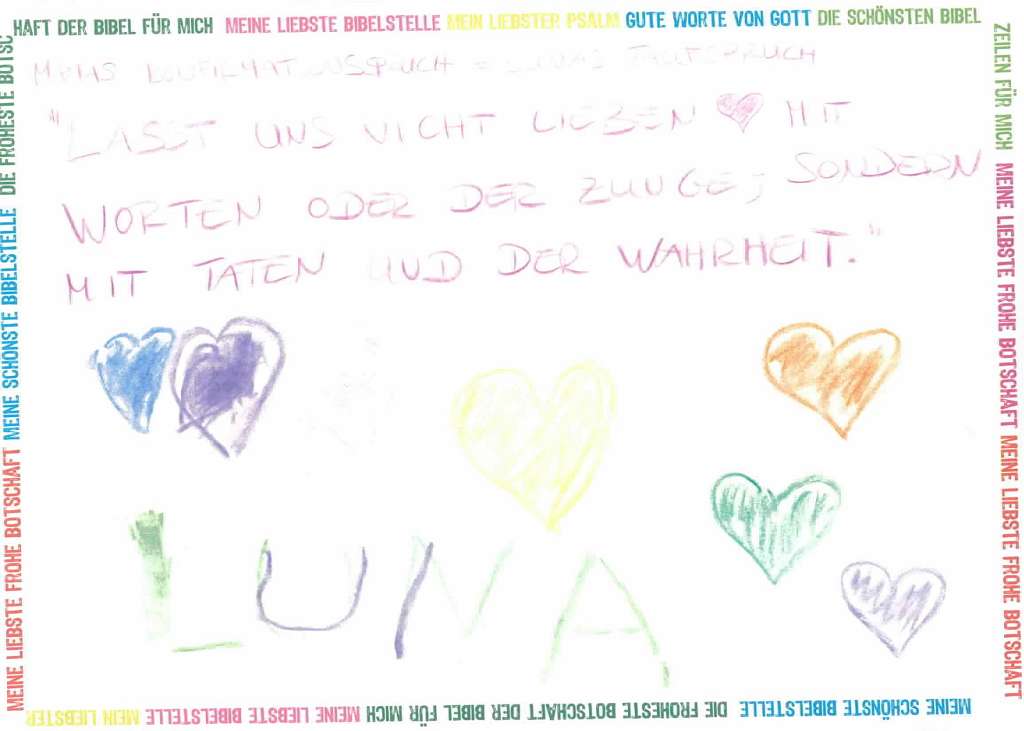 HAFT DER BIBEL FÜR MICH MEINE LIEBSTE BIBELSTELLE MEIN LIEBSTER PSALM GUTE WORTE VON GOTT DIE SCHÖNSTEN BIBEL
ZEILEN FÜR MICH MEINE LIEBSTE FROHE BOTSCHAFT MEINE LIEBSTE FROHE BOTSCHAFT
MAMAS KONFIRMATIONSSPRUCH = LUNAS TAUFSPRUCH
"LASST UNS NICHT LIEBEN MIT
WORTEN ODER DER ZUNGE, SONDERN
MIT TATEN UND DER WAHRHEIT."
LUNA
MEINE SCHÖNSTE BIBELSTELLE DIE FROHESTE BOTSCHAFT DER BIBEL FÜR MICH MEINE LIEBSTE BIBELSTELLE MEIN LIEBSTER
MEINE LIEBSTE FROHE BOTSCHAFT MEINE SCHÖNSTE BIBELSTELLE DIE FROHESTE BOTSC